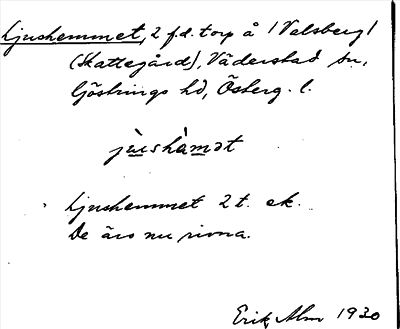 Ljushemmet, 2 f.d. torp å /Valsberg/
(Skattegård), Väderstad sn,
Göstrings hd, Österg. l.
jùshàmət
Ljushemmet 2 t. ek.
De äro nu rivna.
Erik Alm 1930